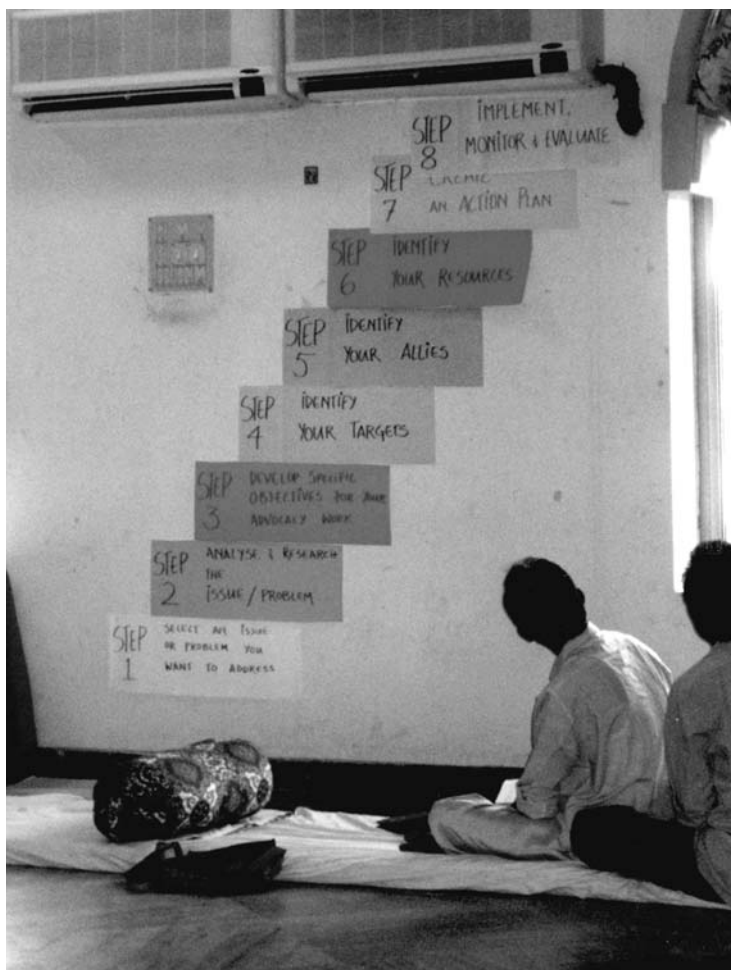 STEP 8
IMPLEMENT,
MONITOR & EVALUATE
STEP 7
CREATE
AN ACTION PLAN
STEP 6
IDENTIFY
YOUR RESOURCES
STEP 5
IDENTIFY
YOUR ALLIES
STEP 4
IDENTIFY
YOUR TARGETS
STEP 3
DEVELOP SPECIFIC
OBJECTIVES FOR YOUR
ADVOCACY WORK
STEP 2
ANALYSE & RESEARCH
THE
ISSUE / PROBLEM
STEP 1
SELECT AN ISSUE
OR PROBLEM YOU
WANT TO ADDRESS